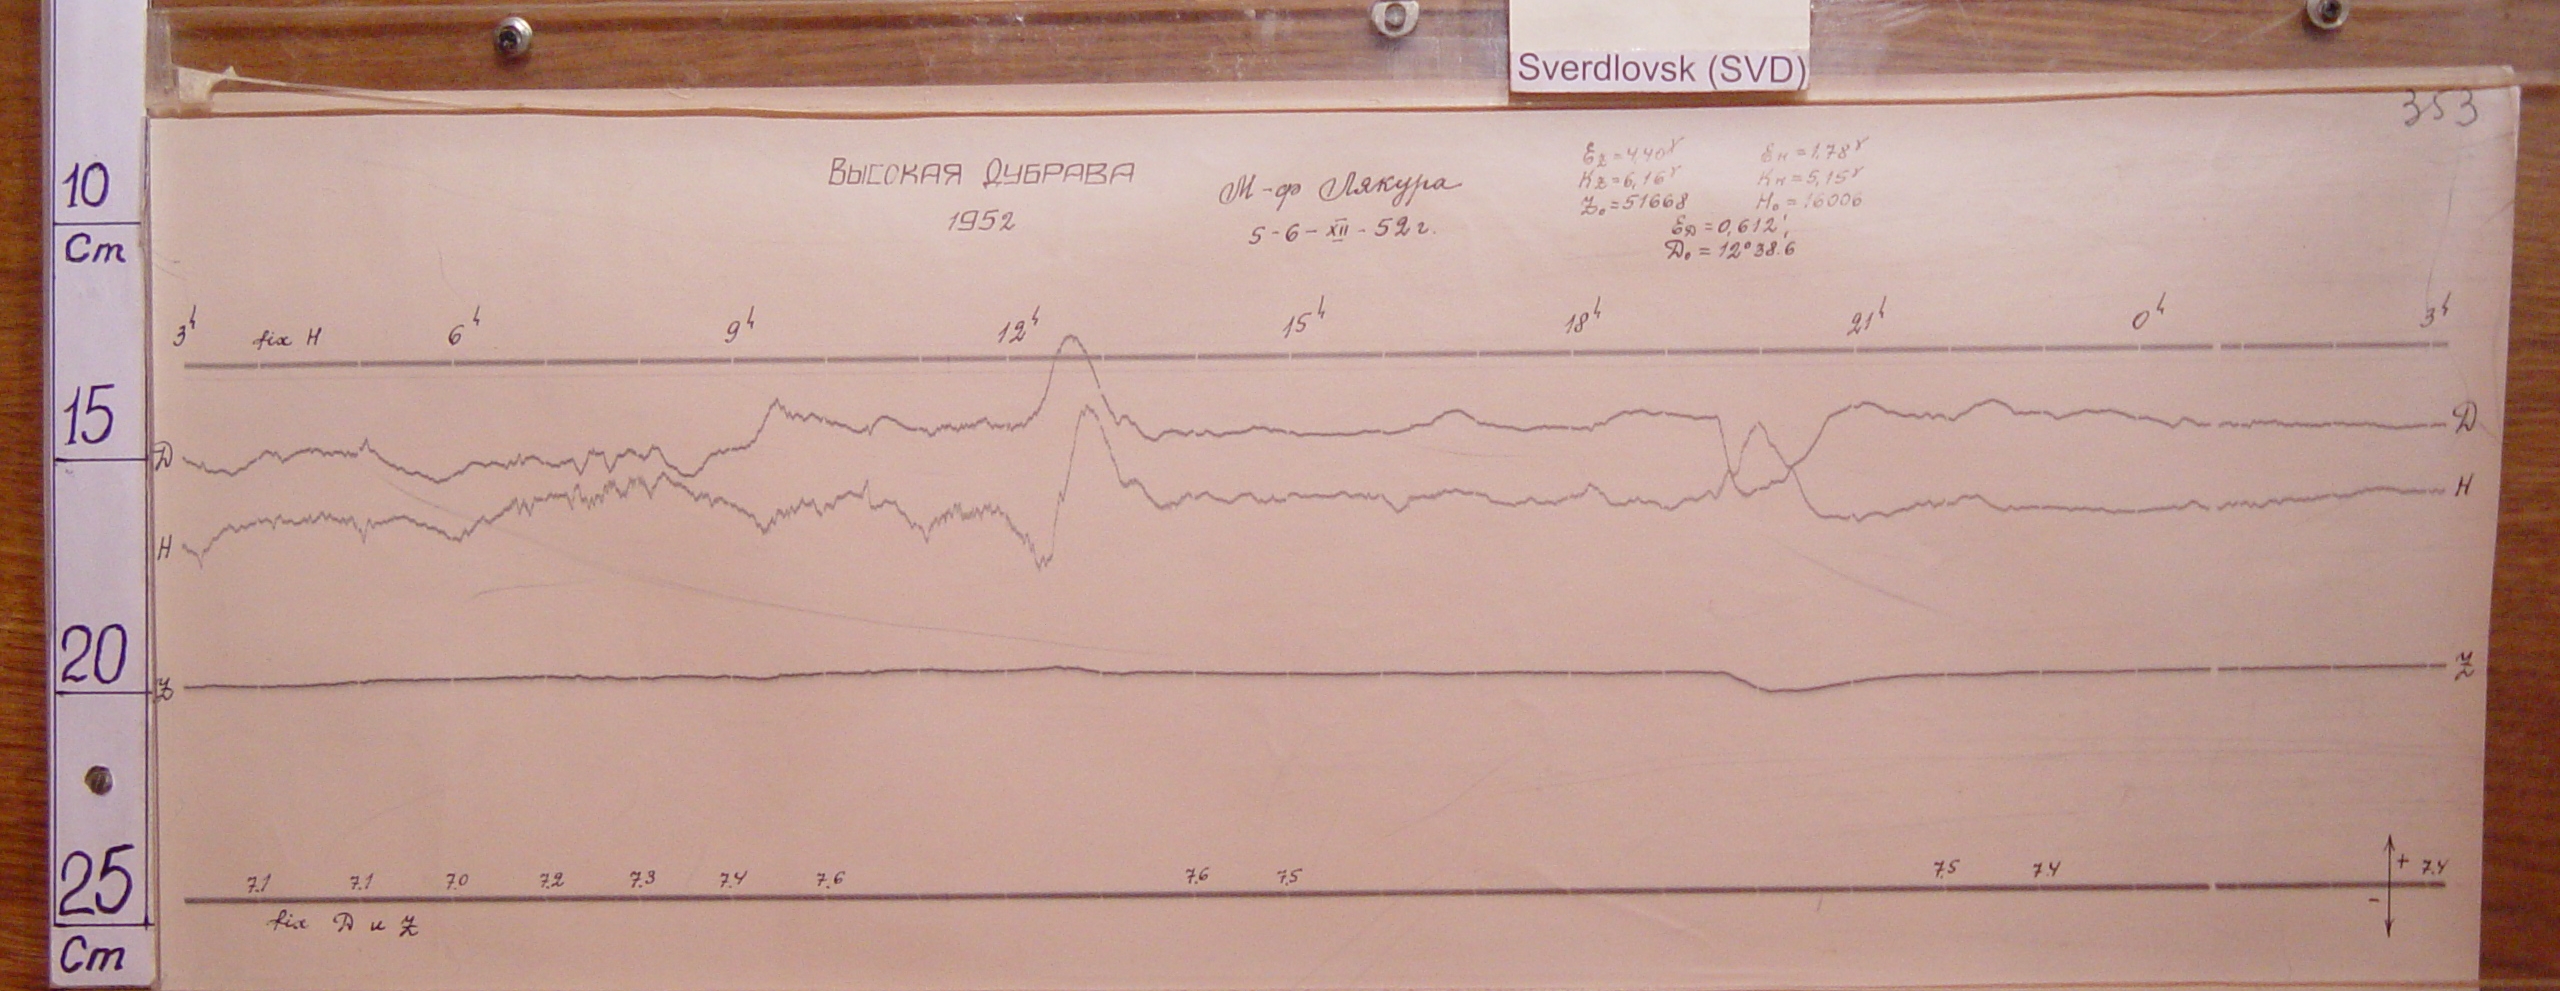 Sverdlovsk (SVD)
353
ВЫСОКАЯ ДУБРАВА
1952
М-ф Лякура
5-6-XII-52г.
Ez=4,40γ EH=1,78γ
Kz=6,16γ KH=5,15γ
Z₀=51668 H₀=16006
ED=0,612'
D₀=12°38.6
10
Cm
15
20
25
Cm
3h 6h 9h 12h 15h 18h 21h 0h 3h
fix H
D D
H H
Z Z
7.1 7.1 7.0 7.2 7.3 7.4 7.6 7.6 7.5 7.5 7.4 7.4
+
-
fix D и Z